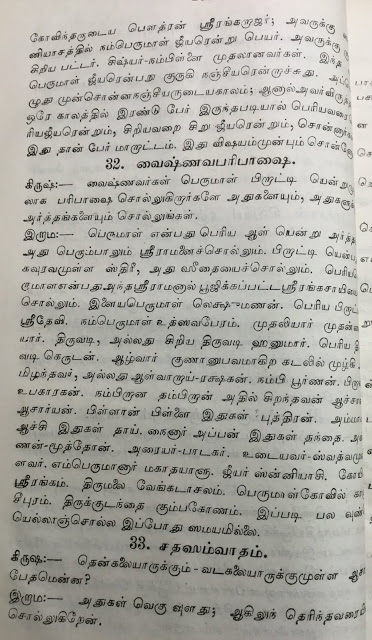 கோவிந்தருடைய பௌத்ரன் ஸ்ரீரங்கராஜர்; அவருக்கு
னியாசத்தில் நம்பெருமாள் ஜீயரென்று பெயர். அவருக்கு
கிறிய பட்டர். சிஷ்யர்-நம்பிள்ளை முதலானவர்கள். இந்த
பெருமாள் ஜீயரென்பது குருகி நஞ்சீயரென்றாச்சுது.
ழுது முன்சொன்ன நஞ்சீயருடையகாலம்; ஆனால் அவர்
ஒரே காலத்தில் இரண்டு பேர் இருந்தபடியால் பெரியவரை
ரியஜீயரென்றும், சிறியவரை சிறு ஜீயரென்றும், சொன்னார்
இது தான் பேர் மாறாட்டம். இது விஷயம்முன்பும் சொன்னே
32. வைஷ்ணவபரிபாஷை.
கிருஷ:— வைஷ்ணவர்கள் பெருமாள் பிராட்டி யென்று
லாக பரிபாஷை சொல்லுகிறார்களே அதுகளையும், அதுகளுக்
அர்த்தங்களையும் சொல்லுங்கள்.
இராம:— பெருமாள் என்பது பெரிய ஆள் யென்று அர்த்த
அது பெரும்பாலும் ஸ்ரீராமனைச்சொல்லும். பிராட்டி யென்ப
கவுரவமுள்ள ஸ்திரீ, அது ஸீதையைச்சொல்லும். பெரிய
ருமாள என்பது அந்த ஸ்ரீராமனால் பூஜிக்கப்பட்ட ஸ்ரீரங்கசாயியை
சொல்லும். இளையபெருமாள் லெக்ஷுமணன். பெரிய பிராட்
ஸ்ரீதேவி. நம்பெருமாள் உத்ஸவபேரம். முதலியார் முதன்மை
யார். திருவடி, அல்லது சிறிய திருவடி ஹனுமார். பெரிய தி
வடி கெருடன். ஆழ்வார் குணானுபவமாகிற கடலில் முழ்கி
மிழந்தவர், அல்லது ஆள்வாராய்-ரக்ஷகன். நம்பி பூர்ணன். பிரான்
உபகாரகன். நம்பிரான் தம்பிரான் அதில் சிறந்தவன் ஆச்சான்
ஆசார்யன். பிள்ளான் பிள்ளை இதுகள் புத்திரன். அம்மா
ஆச்சி இதுகள் தாய். நைனார் அப்பன் இதுகள் தந்தை.
ணன்-மூத்தோன். அரையர்-பாடகர். உடையவர்-ஸ்வத்வமு
ளவர். எம்பெருமானார் மகாதயாளூ. ஜீயர் ஸன்னியாசி. கோயி
ஸ்ரீரங்கம். திருமலை வேங்கடாசலம். பெருமாள்கோவில் கா
சிபுரம். திருக்குடந்தை கும்பகோணம். இப்படி பல வுண்
யெல்லாஞ்சொல்ல இப்போது ஸமயமில்லை.
33. சதஸம்வாதம்.
கிருஷ:— தென்கலையாருக்கும்-வடகலையாருக்குமுள்ள ஆசா
பேதமென்ன?
இராம:— அதுகள் வெகு வுளது; ஆகிலுந் தெரிந்தவரை
சொல்லுகிறேன்.